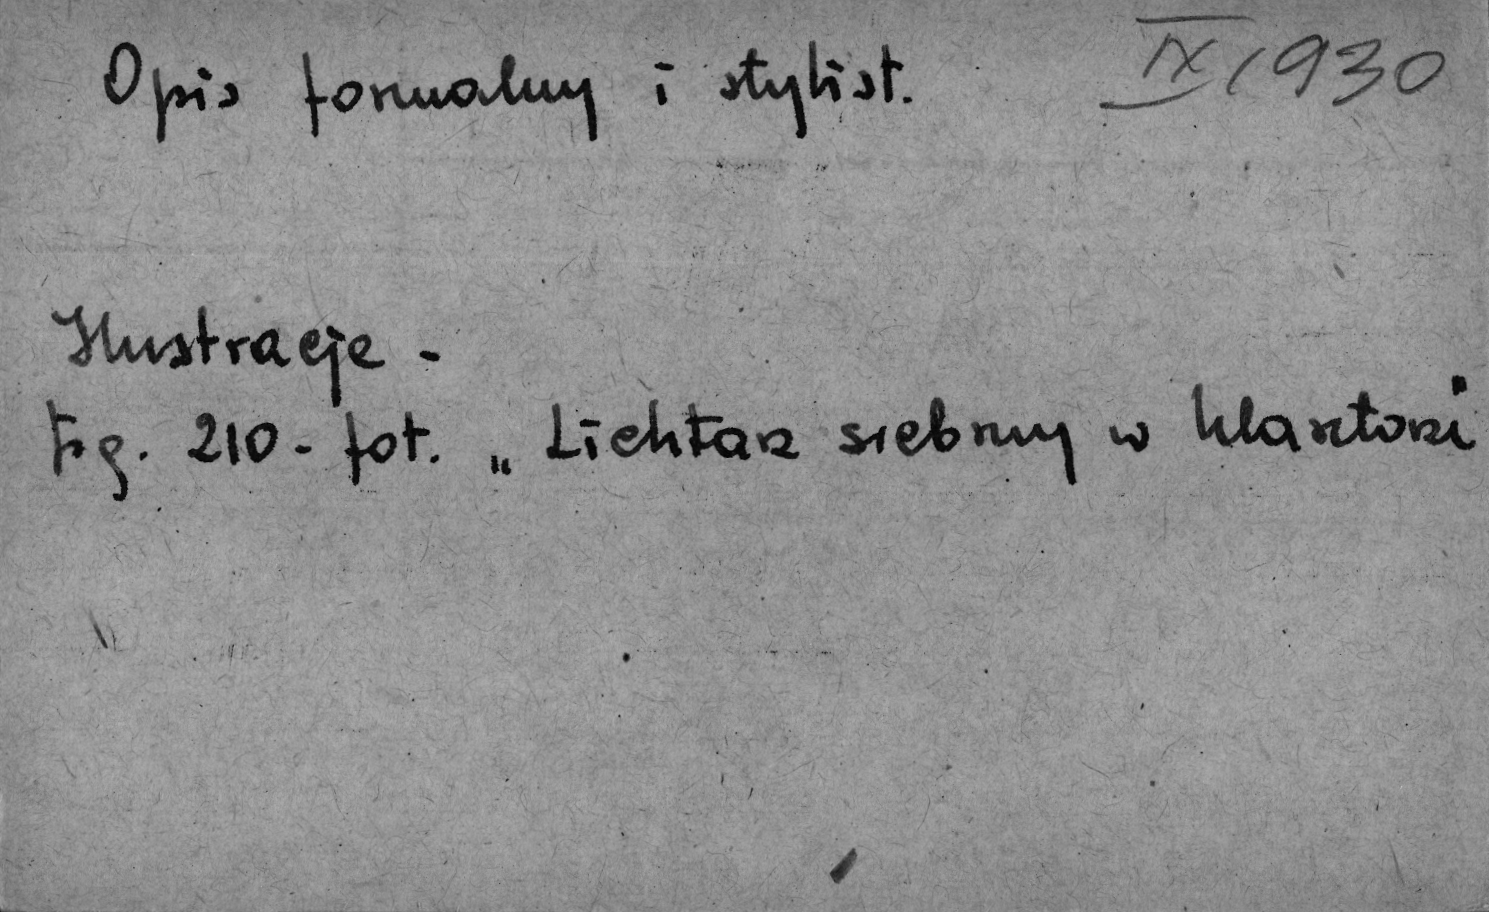 Opis formalny i stylist. IX 1930
Ilustracje -
Fig. 210 - fot. „Lichtarz srebrny w klasztorze"